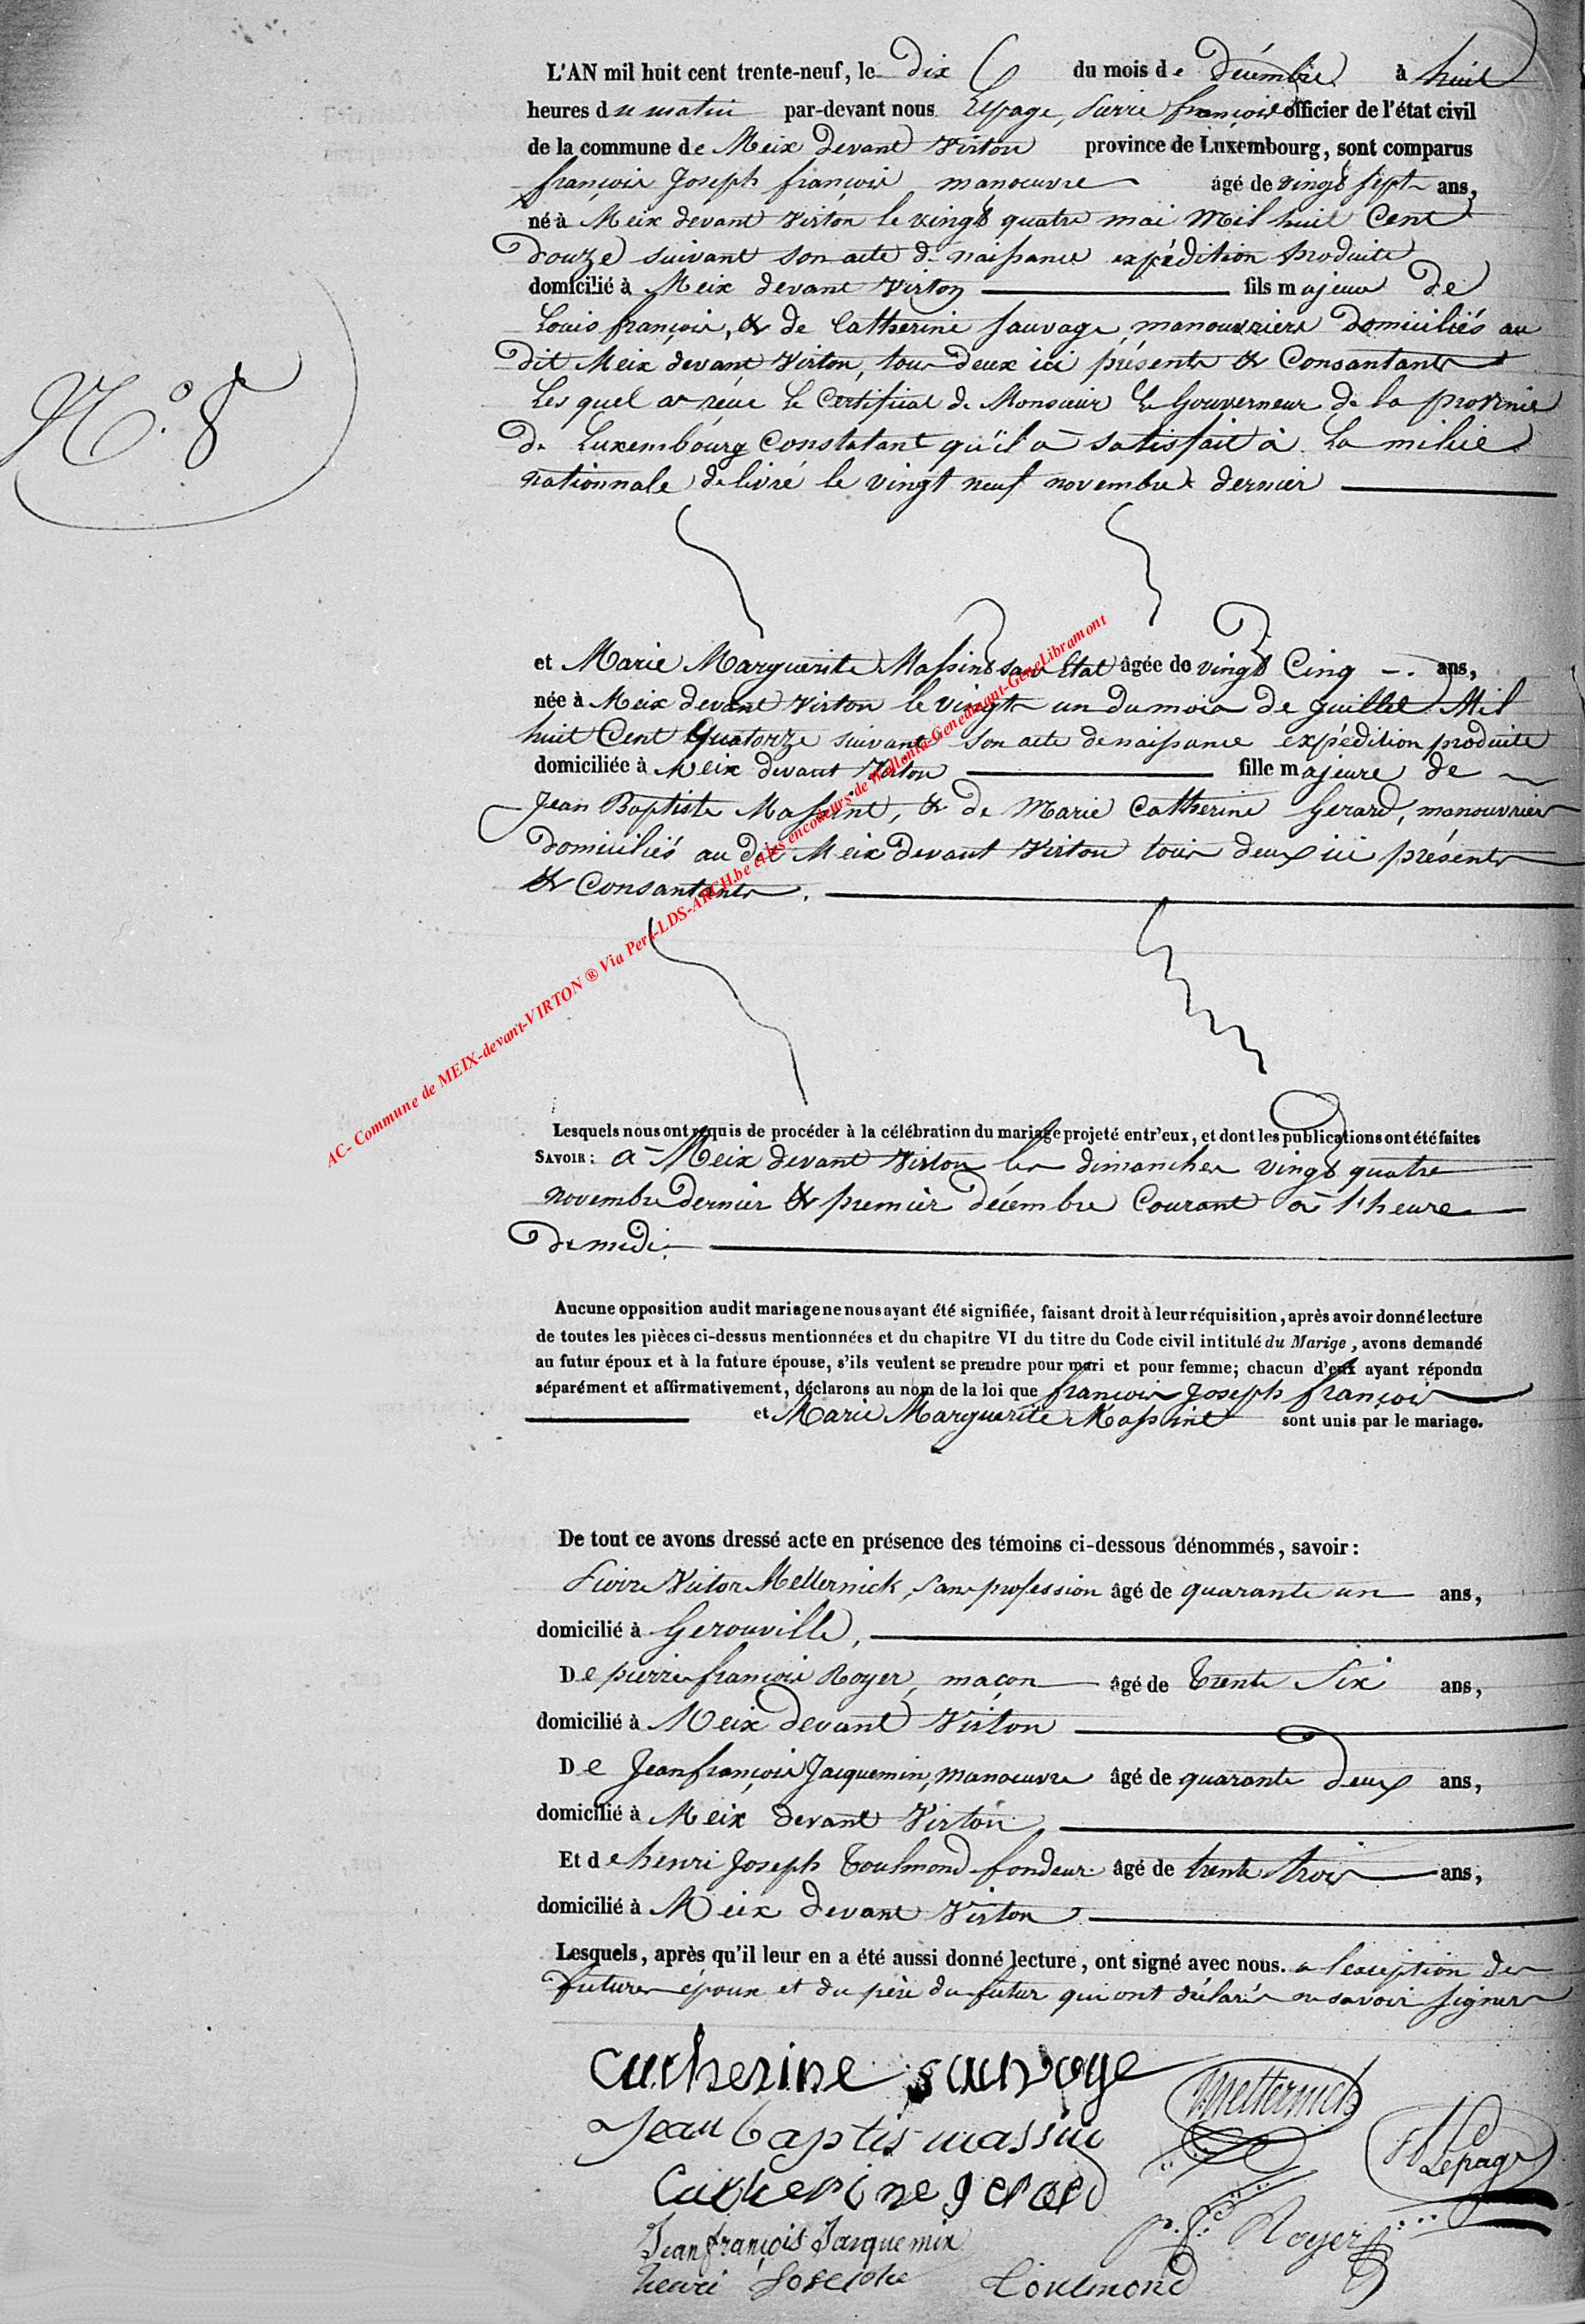 L'AN mil huit cent trente-neuf, le dix du mois de décembre à huit
heures du matin par-devant nous Lepage, Pierre françois officier de l'état civil
de la commune de Meix devant Virton province de Luxembourg, sont comparus
françois Joseph françois manoeuvre âgé de vingt sept ans,
né à Meix devant Virton le vingt quatre mai mil huit Cent
douze suivant son acte de naissance expédition produite
domicilié à Meix devant Virton fils majeur de
Louis françois, & de Catherine Sauvage, manouvriers domiciliés au
dit Meix devant Virton, tous deux ici présents & Consantants
Les quel a reçue le Certificat de Monsieur le Gouverneur de la province
de Luxembourg Constatant qu'il à satisfait à la milice
nationnale delivré le vingt neuf novembre dernier
N.° 8
et Marie Marguerite Massint sans Etat âgée de vingt Cinq ans,
née à Meix devant Virton le vingt un du mois de Juillet Mil
huit Cent Quatorze suivant son acte de naissance expédition produite
domiciliée à Meix devant Virton fille majeure de
Jean Baptiste Massint, & de Marie Catherine Gerard, manouvriers
domiciliés au dit Meix devant Virton tous deux ici présents
& Consantants.
AC- Commune de MEIX-devant-VIRTON ® Via Pers-LDS-ARCH.be et les encodeurs de Wallonia-Genedinant-GeneLibramont
Lesquels nous ont requis de procéder à la célébration du mariage projeté entr'eux, et dont les publications ont été faites
SAVOIR: à Meix devant Virton les dimanches vingt quatre
novembre dernier & premier décembre Courant à l'heure
de midi.
Aucune opposition audit mariage ne nous ayant été signifiée, faisant droit à leur réquisition, après avoir donné lecture
de toutes les pièces ci-dessus mentionnées et du chapitre VI du titre du Code civil intitulé du Marige, avons demandé
au futur époux et à la future épouse, s'ils veulent se prendre pour mari et pour femme; chacun d'eux ayant répondu
séparément et affirmativement, déclarons au nom de la loi que françois Joseph françois
et Marie Marguerite Massint sont unis par le mariage.
De tout ce avons dressé acte en présence des témoins ci-dessous dénommés, savoir:
Pierre Victor Metternick, sans profession âgé de quarante un ans,
domicilié à Gerouville,
De pierre françois Royer, maçon âgé de trente Six ans,
domicilié à Meix devant Virton
De Jean françois Jacquemin, manoeuvre âgé de quarante deux ans,
domicilié à Meix devant Virton
Et de henri Joseph Toulmond fondeur âgé de trente trois ans,
domicilié à Meix devant Virton
Lesquels, après qu'il leur en a été aussi donné lecture, ont signé avec nous. a l'exception des
futurs époux et du père du futur qui ont déclarés ne savoir signer
Catherine sauvage
V Metternick
Jean baptis massin
Lepage
Catherine gerard
p. f. Royer
Jean françois Jacquemin
henri Josephe Toulmond